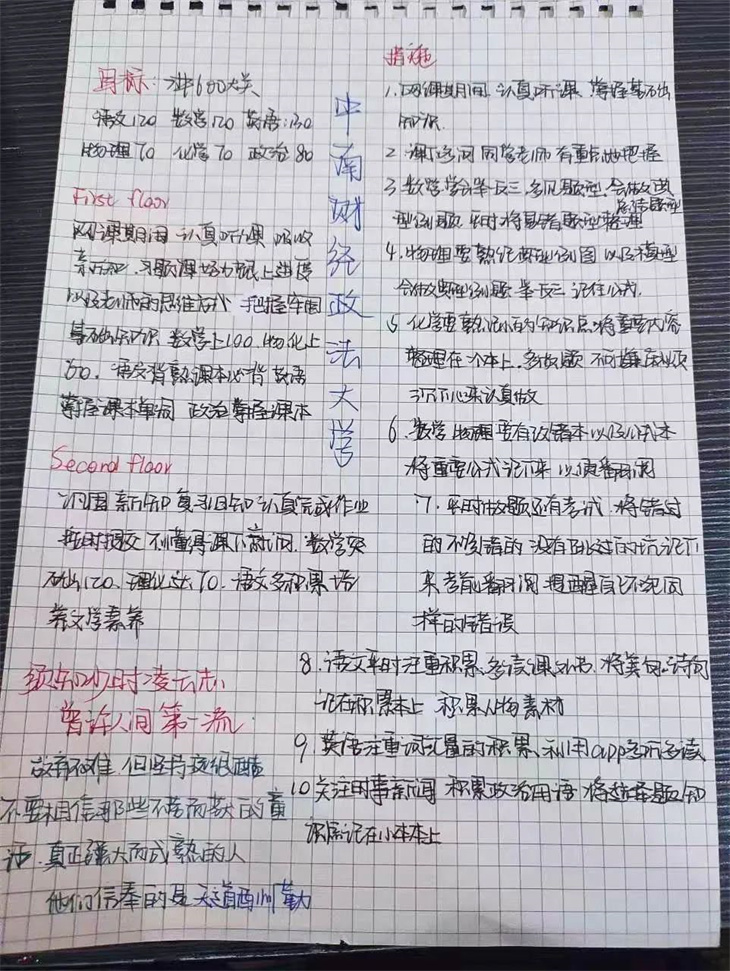 目标：冲600大关
语文120 数学120 英语：130
物理70 化学70 政治80
First floor
网课期间 认真听课 吸收
新知识，习题课努力跟上进度
以及老师的思维方式 把握牢固
基础知识 数学上100 物化上
60、语文背熟课本必背 英语
掌握课本单词 政治掌握课本
Second floor
巩固新知 复习旧知 认真完成作业
按时提交 不懂得课下高问、数学突
破120、理化达70、语文多积累培
养文学素养
须知少时凌云志
曾许人间第一流
故有不难，但坚持孩很酷
不要相信那些不劳而获的童
话、真正强大而成熟的人
他们信奉的是天道酬勤
中南财经政法大学
措施
1、网课期间 认真听课、掌握基础
知识
2 课下多问同学老师 有重点地把握
3 数学学会举一反三、多见题型、会做典
型例题 平时将易错题型整理
总结题型
4、物理要熟记典型例图 以及模型
会做典型例题 举一反三 记住公式
5 化学要熟记小的知识点，将重要内容
整理在个本上，多做题 不可嫌麻烦
沉下心来认真做
6、数学 物理要有改错本以及公式本
将重要公式记下来 以便翻阅
7、平时做题还有考试、将错过
的 不会错的 没有跳过的坑记下
来 考前翻阅 提醒自己不犯同
样的错误
8、语文平时注重积累、多读课外书、将美句、诗词
记在积累本上 积累人物素材
9、英语注重词汇量的积累、利用app多听多读
10 关注时事新闻 积累政治用语 将选择题知
识点记在小本本上